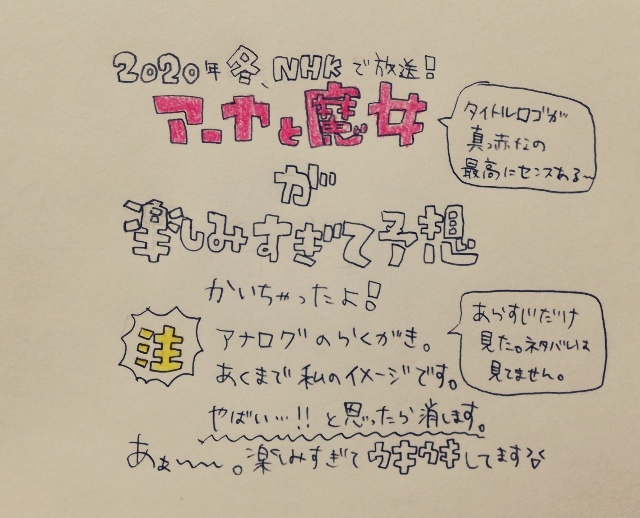 2020年 冬、NHKで放送!
アーヤと魔女
タイトルロゴが
真っ赤なの
最高にセンスある〜
が
楽しみすぎて予想
かいちゃったよ!
注
アナログのらくがき。
あくまで私のイメージです。
あらすじだけ
見た。ネタバレは
見てません。
やばい…!!と思ったら消します。
あぁ〜〜。楽しみすぎてウキウキしてます